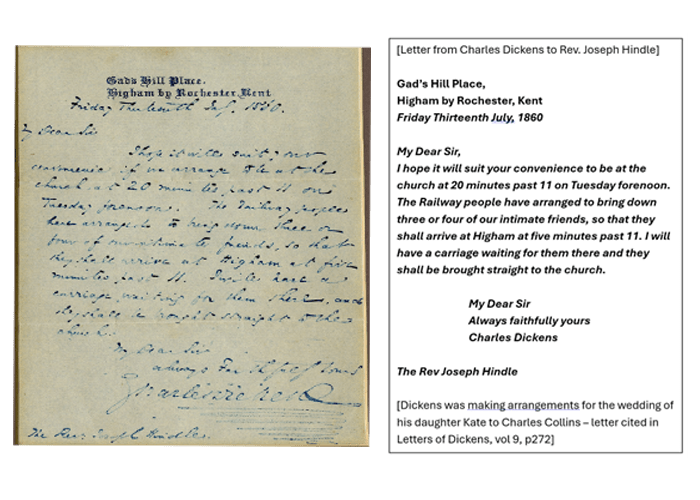 Gad's Hill Place.
Higham by Rochester, Kent
Friday Thirteenth July, 1860.
My Dear Sir
I hope it will suit your
convenience if we arrange to be at the
church at 20 minutes past 11 on
Tuesday forenoon. The Railway people
have arranged to bring down three or
four of our intimate friends, so that
they shall arrive at Higham at five
minutes past 11. I will have a
carriage waiting for them there, and
they shall be brought straight to the
church.
My Dear Sir
always Faithfully yours
Charles Dickens
The Rev. Joseph Hindle.
[Letter from Charles Dickens to Rev. Joseph Hindle]
Gad's Hill Place,
Higham by Rochester, Kent
Friday Thirteenth July, 1860
My Dear Sir,
I hope it will suit your convenience to be at the
church at 20 minutes past 11 on Tuesday forenoon.
The Railway people have arranged to bring down
three or four of our intimate friends, so that they
shall arrive at Higham at five minutes past 11. I will
have a carriage waiting for them there and they
shall be brought straight to the church.
My Dear Sir
Always faithfully yours
Charles Dickens
The Rev Joseph Hindle
[Dickens was making arrangements for the wedding of
his daughter Kate to Charles Collins – letter cited in
Letters of Dickens, vol 9, p272]